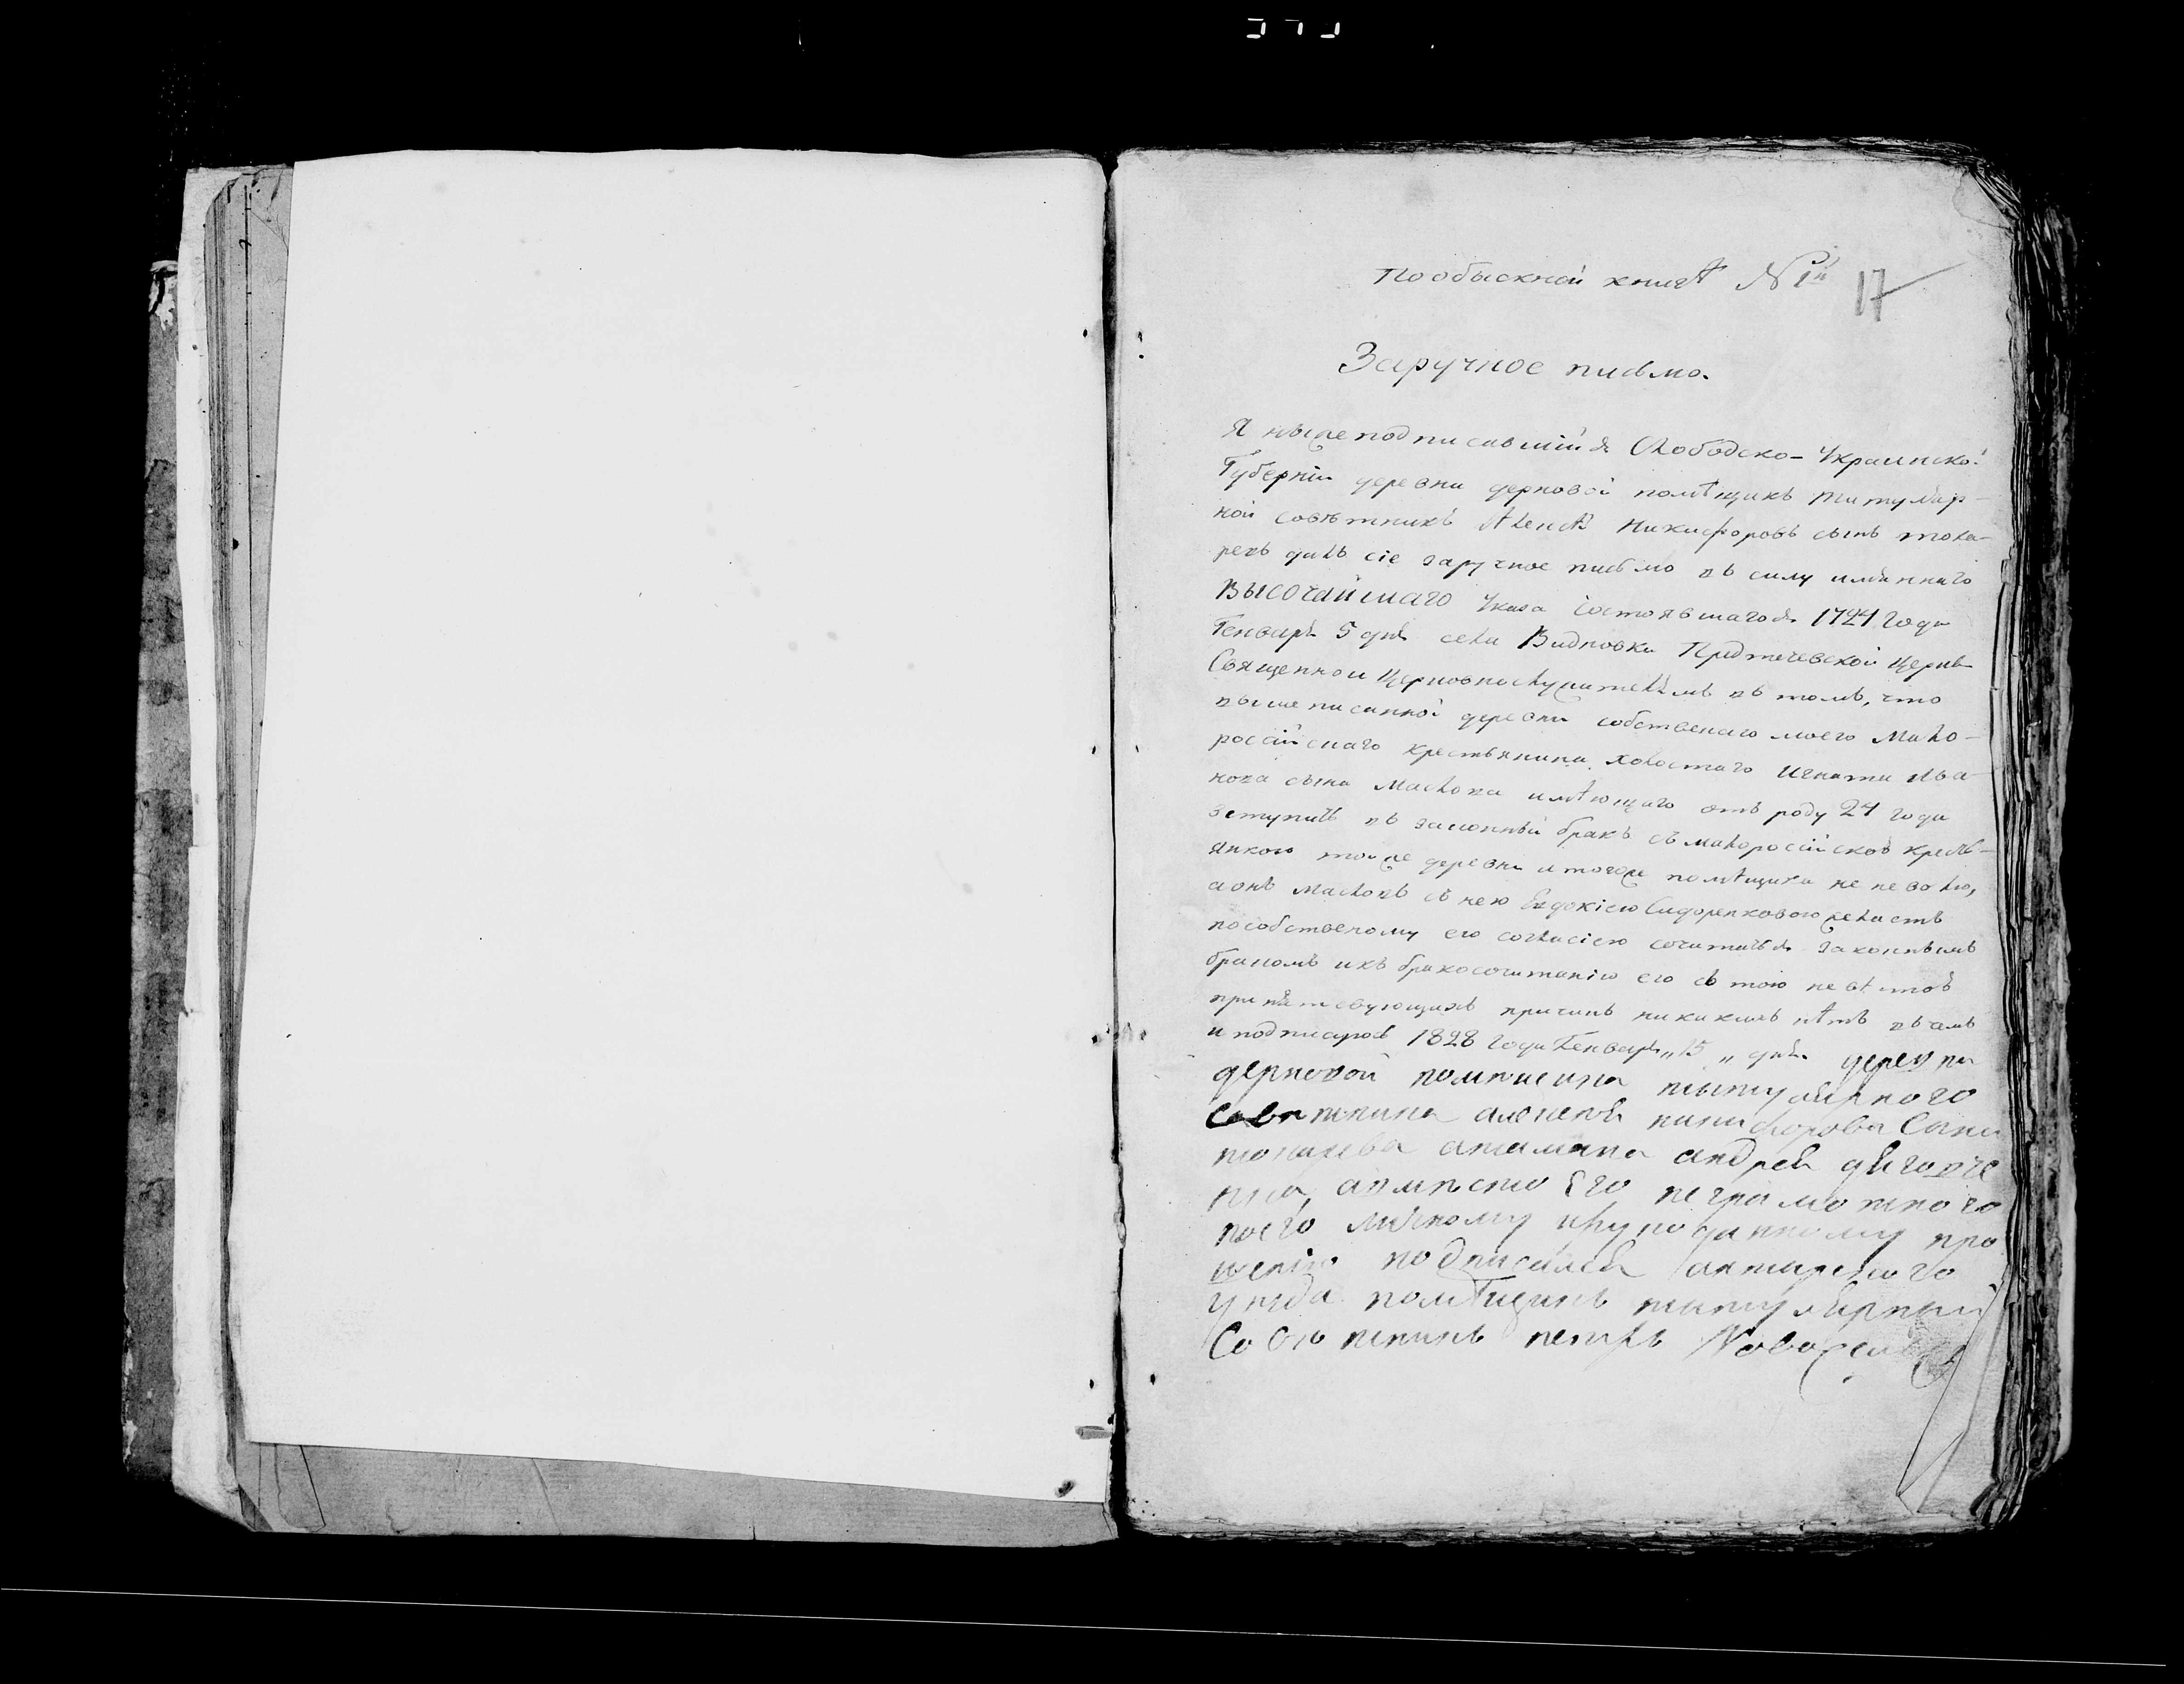 Пообыскной книгѣ № 1й
17
Заручное письмо.
Я нижеподписавшійся Слободско-Украинской
Губерніи деревни дерновой помѣщикъ титуляр-
ной совѣтникъ Алексѣй Никифоровъ сынъ тока-
ревъ далъ сіе заручное письмо въ силу имяннаго
Высочайшаго Указа состоявшагося 1724 года
Генваря 5 дня села Видновки Предтечевской Церкви
Священно и Церковнослужителямъ въ томъ, что
вышеписанной деревни собственаго моего Мало-
россійскаго крестьянина холостаго Игната Ива-
нова сына Маслова имѣющаго отъ роду 24 года
вступить въ законный бракъ съ малоросійскою кресть-
янкою тойже деревни и тогоже помѣщика не неволю,
а онъ Масловъ съ нею Евдокіею Сидоренковою желаетъ
пособственому его согласію сочитаться законнымъ
бракомъ икъ бракосочитанію его съ тою невѣстою
препятствующихъ причинъ никакихъ нѣтъ въ чемъ
и подписуюсь 1828 года Генваря „15„ дня деревни
дерновой помѣщика тытулярного
совѣтника алексея никифорова Сына
токарева атамана андрея
а вмѣсто Его неграмотного
поего личному ирукоданному про
шенію подписался ахтырского
уезда помѣщикъ тытулярный
Совѣтникъ петръ